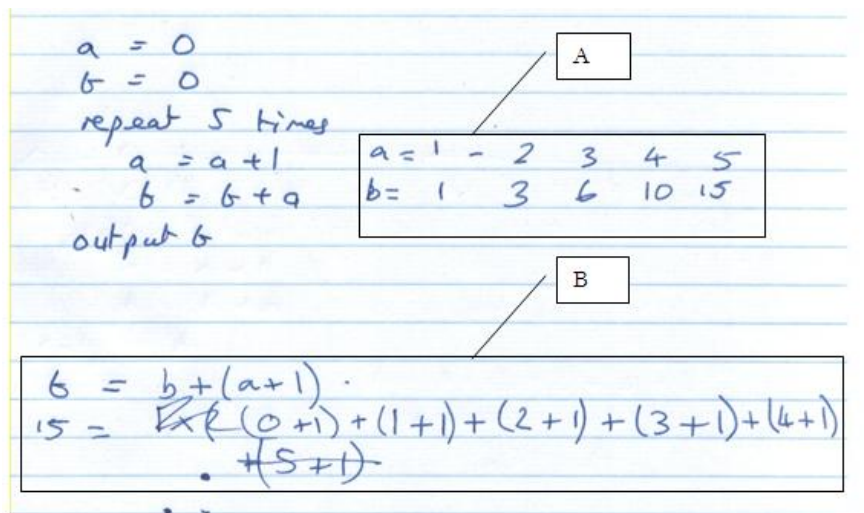 a = 0
b = 0
repeat 5 times
a = a + 1
b = b + a
output b
A
a = 1 - 2 3 4 5
b = 1 3 6 10 15
B
b = b + (a + 1) .
15 = (0 + 1) + (1 + 1) + (2 + 1) + (3 + 1) + (4 + 1)
+(5 + 1)